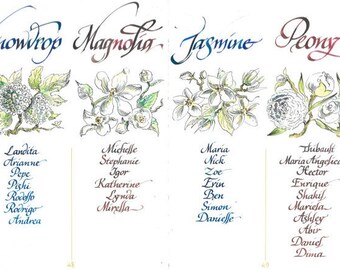 nowdrop
Landita
Arianne
Pepe
Pochi
Rodolfo
Rodrigo
Andrea
Magnolia
Michelle
Stephanie
Igor
Katherine
Lynda
Mirella
Jasmine
Maria
Nick
Zoe
Erin
Ben
Simon
Danielle
Peony
Thibault
Maria Angelica
Hector
Enrique
Shakil
Mariela
Ashley
Abir
Daniel
Dima